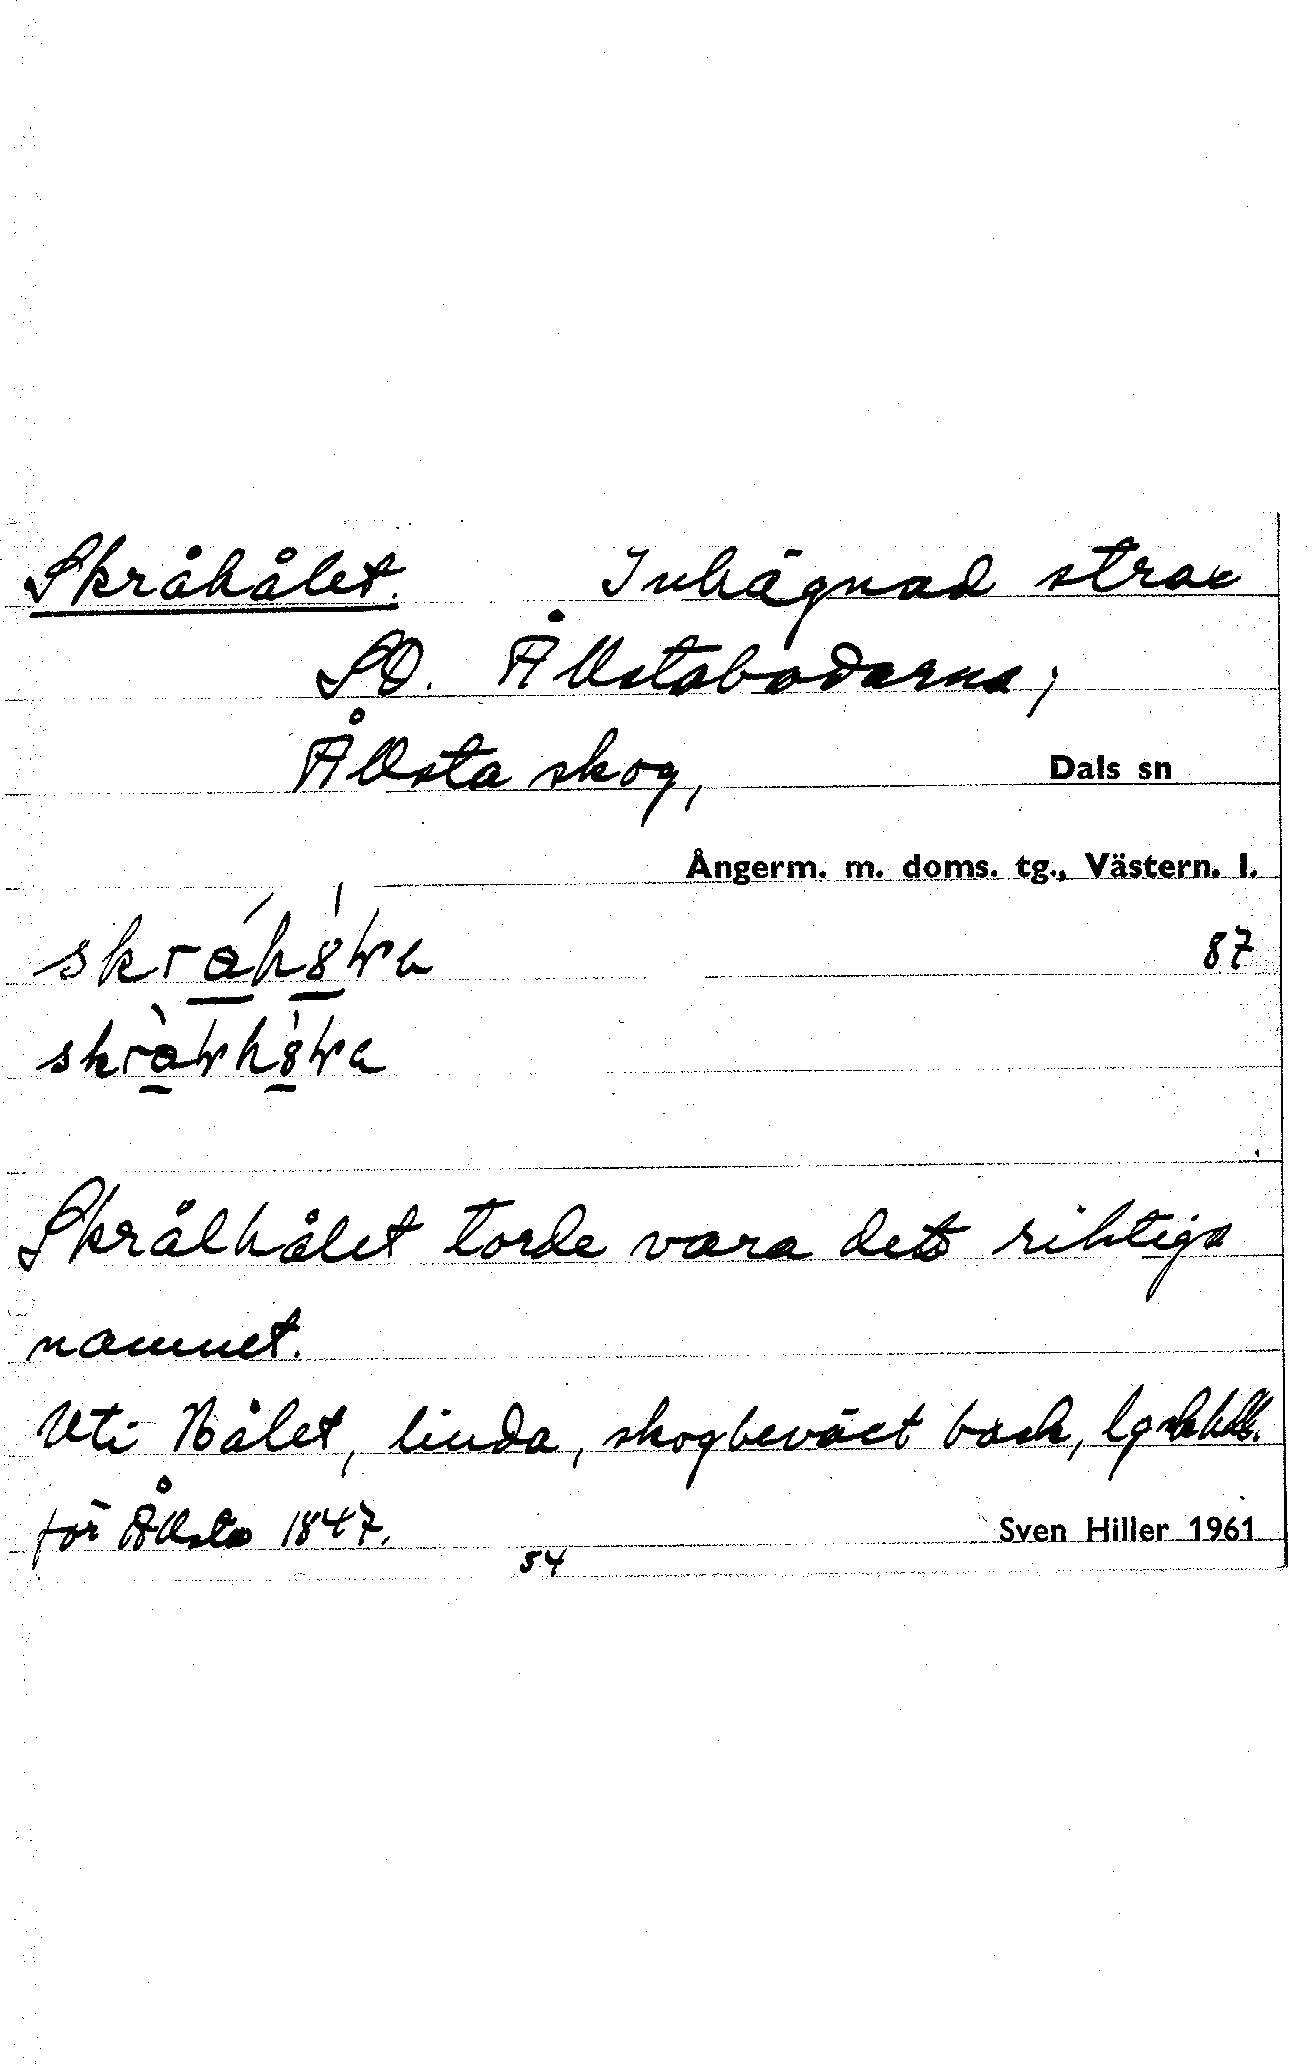 Skråhålet. Inhägnad strax
SO. Ållstabodarna;
Ållsta skog, Dals sn
Ångerm. m. doms. tg., Västern. l.
87
Skrålhålet torde vara det riktiga
namnet.
Uti Hålet, linda, skogbeväxt back, lgsk hdl.
för Ållsta 1847.
Sven Hiller 1961
54